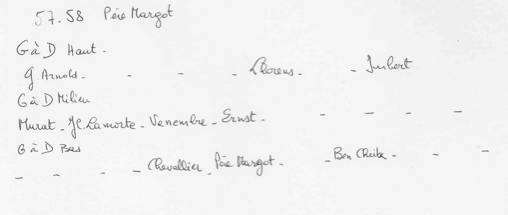 57.58 Père Margot
G à D Haut.
G Arnold - - - - Llorens - - Imbert
G à D Milieu
Murat - JC Lamorte - Venembre - Ernst - - - - -
G à D Bas
- - - - Chevallier - Père Margot - - Ben - -